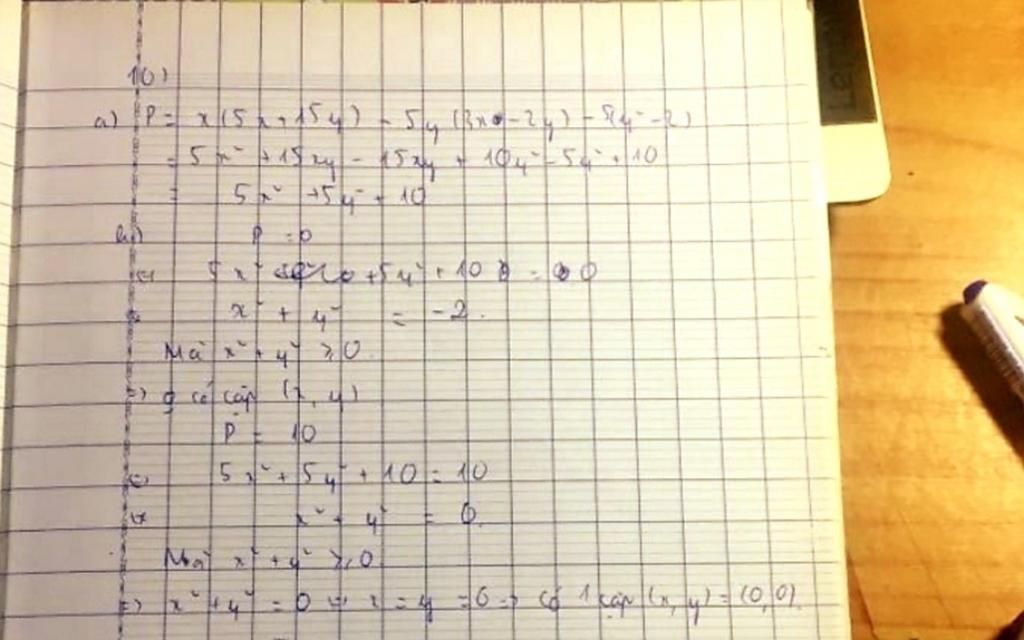 10)
a) P = x(5x + 15y) - 5y(3x - 2y) - 5(y² - 2)
= 5x² + 15xy - 15xy + 10y² - 5y² + 10
= 5x² + 5y² + 10
b) P = 0
⇔ 5x² + 5y² + 10 = 0
⇔ x² + y² = -2.
Mà x² + y² ≥ 0
=> có cặp (x, y)
P = 10
⇔ 5x² + 5y² + 10 = 10
⇔ x² + y² = 0.
Mà x² + y² ≥ 0
=> x² + y² = 0 ⇔ x = y = 0 => có 1 cặp (x, y) = (0, 0).